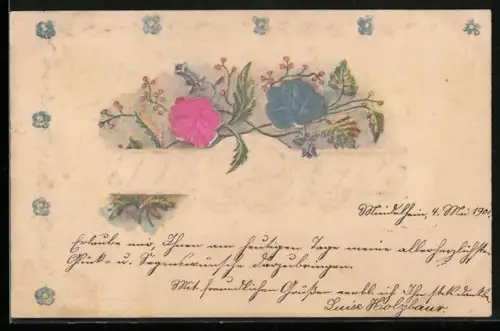 4. Mai 190
Erlaube mir, Ihnen am heutigen Tage meine allerherzlichsten
Glück- u. Segenswünsche darzubringen.
Mit freundlichen Grüßen verbl. ich Ihre stets dankb.
Luise Holzbaur.